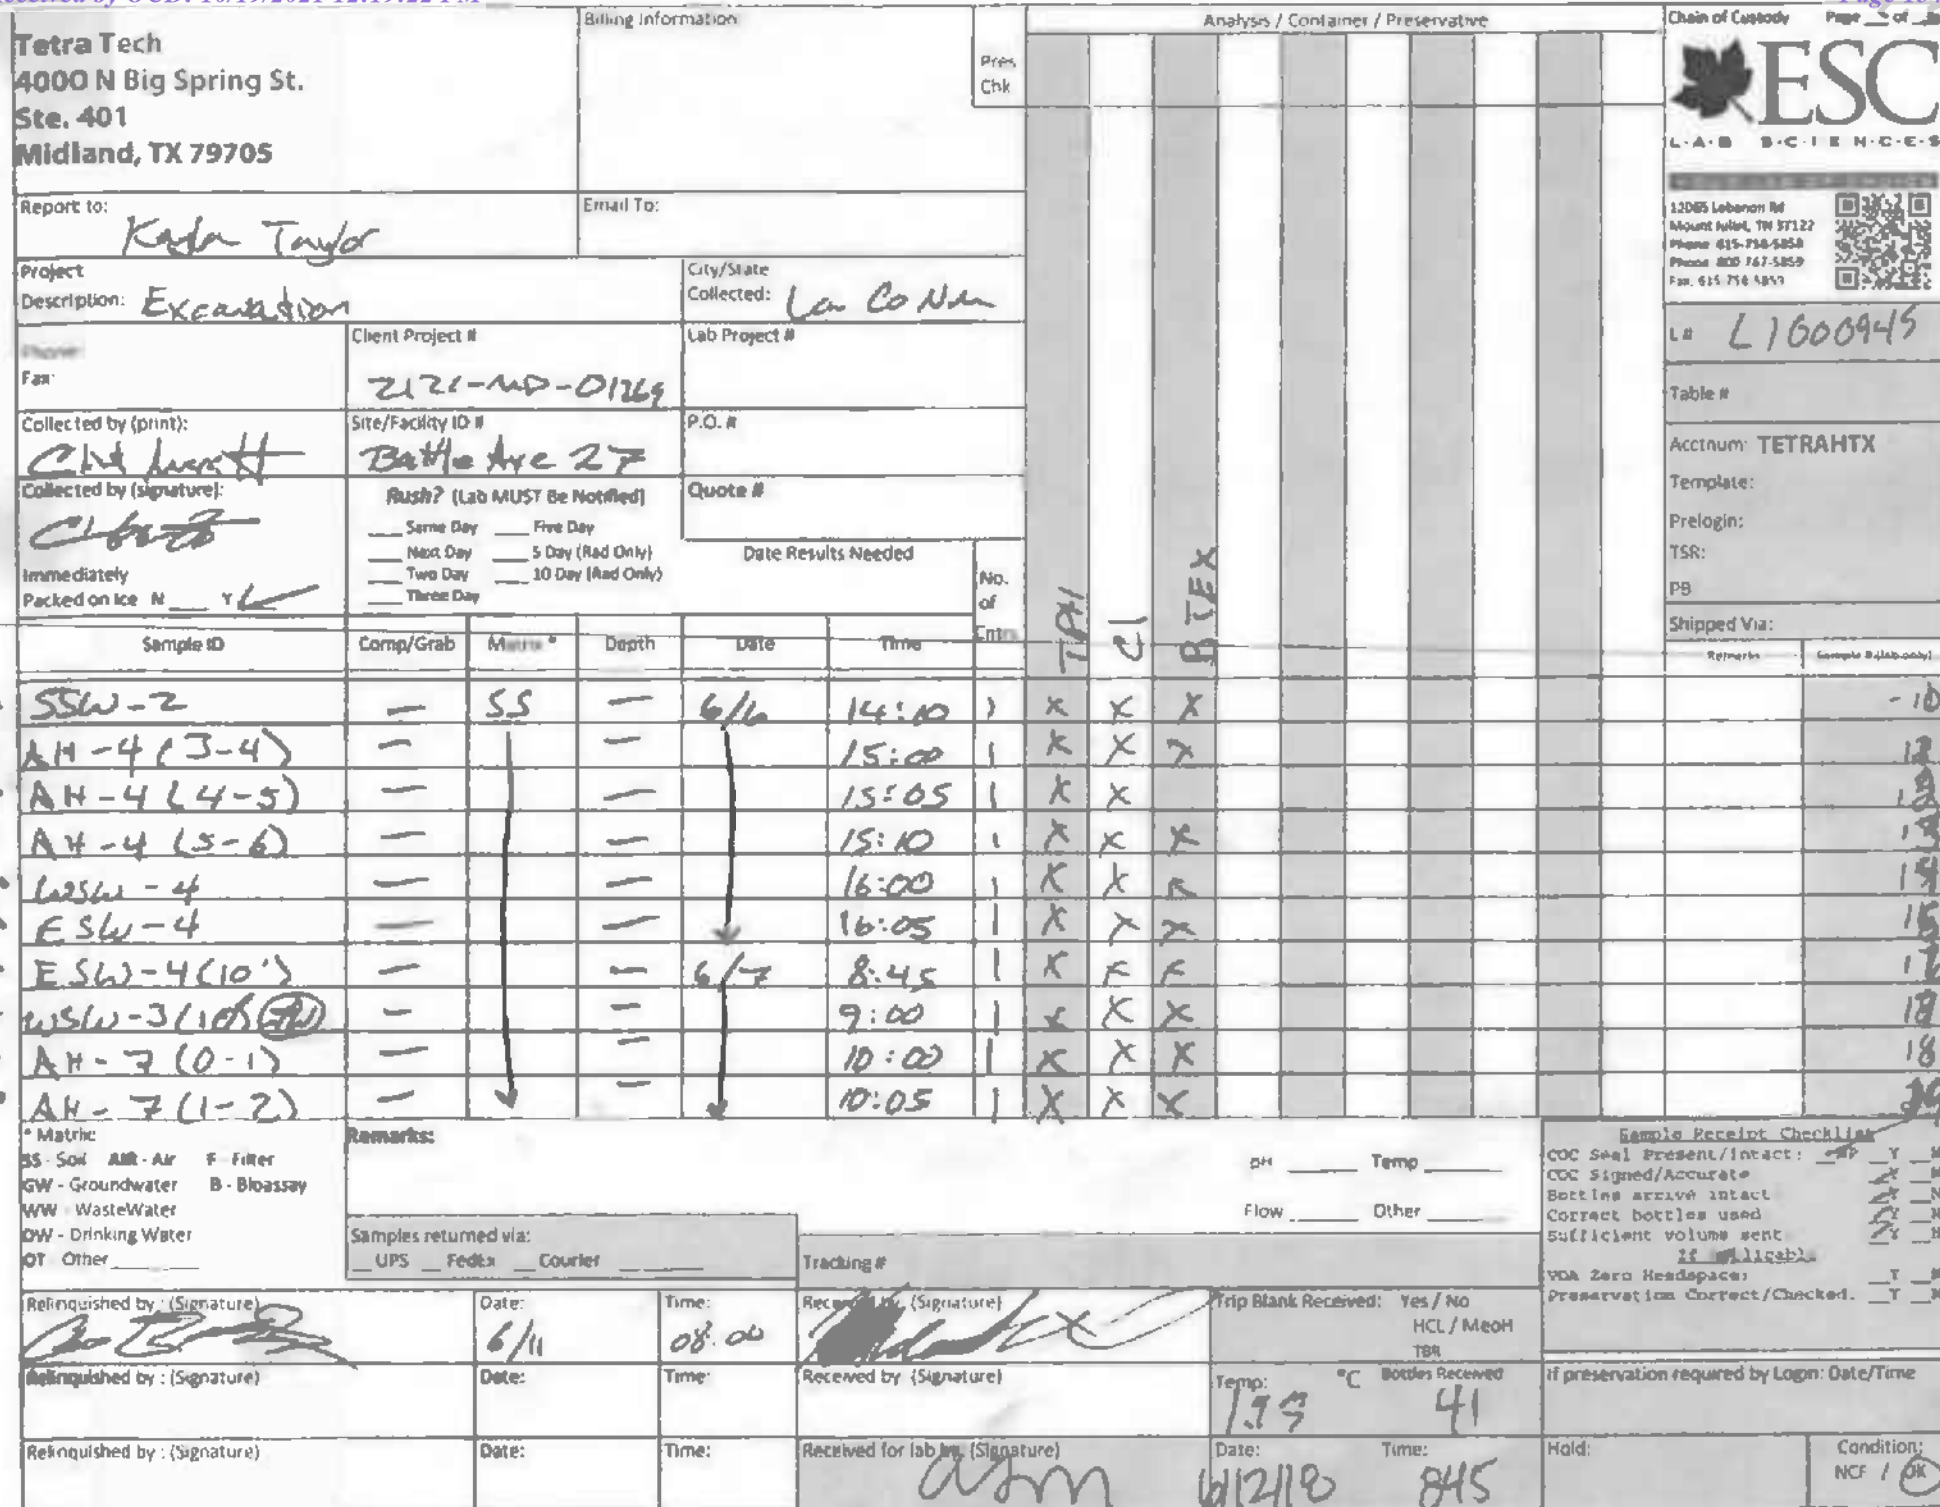 Received by OCD: 10/19/2021 12:19:22 PM
Page
Tetra Tech
4000 N Big Spring St.
Ste. 401
Midland, TX 79705
Billing Information
Pres
Chk
Analysis / Container / Preservative
Chain of Custody Page of
ESC
L·A·B S·C·I·E·N·C·E·S
12065 Lebanon Rd
Mount Juliet, TN 37122
Phone 615-758-5858
Phone 800-767-5859
Fax: 615-758-5859
Report to:
Kayla Taylor
Email To:
Project
Description: Excavation
City/State
Collected: Co NM
Phone:
Fax:
Client Project #
Lab Project #
L# L1000945
Table #
Collected by (print):
Site/Facility ID #
Battle Axe 27
P.O. #
Acctnum: TETRAHTX
Template:
Prelogin:
TSR:
PB
Shipped Via:
Collected by (signature):
Rush? (Lab MUST Be Notified)
Same Day Five Day
Next Day 5 Day (Rad Only)
Two Day 10 Day (Rad Only)
Three Day
Quote #
Date Results Needed
Immediately
Packed on Ice N Y
No.
of
Cntrs
TPH
Cl
BTEX
Sample ID Comp/Grab Matrix * Depth Date Time
Remarks Sample # (lab only)
SSW-2 — SS — 6/6 14:10 1 X X X -10
AH-4 (3-4) — — 15:00 1 X X X
AH-4 (4-5) — — 15:05 1 X X
AH-4 (5-6) — — 15:10 1 X X X
WSW-4 — — 16:00 1 X X X
ESW-4 — — 16:05 1 X X X
ESW-4 (10') — — 6/7 8:45 1 X
WSW-3 — — 9:00 1 X X X
AH-7 (0-1) — — 10:00 1 X X X 18
AH-7 (1-2) — — 10:05 1 X X X
* Matrix:
SS - Soil AIR - Air F - Filter
GW - Groundwater B - Bioassay
WW - WasteWater
DW - Drinking Water
OT - Other
Remarks:
pH Temp
Flow Other
Sample Receipt Checklist
COC Seal Present/Intact: Y N
COC Signed/Accurate N
Bottles arrive intact N
Correct bottles used Y N
Sufficient volume sent Y N
If Applicable
VOA Zero Headspace: Y N
Preservation Correct/Checked. Y N
Samples returned via:
UPS FedEx Courier
Tracking #
Relinquished by : (Signature)
Date:
6/11
Time:
08:00
Received by (Signature)
Trip Blank Received: Yes / No
HCL / MeoH
TBR
Relinquished by : (Signature)
Date:
Time:
Received by (Signature)
Temp: °C Bottles Received
41
If preservation required by Login: Date/Time
Relinquished by : (Signature)
Date:
Time:
Received for lab by (Signature)
Date: Time:
6/12/18 845
Hold:
Condition:
NCF / OK